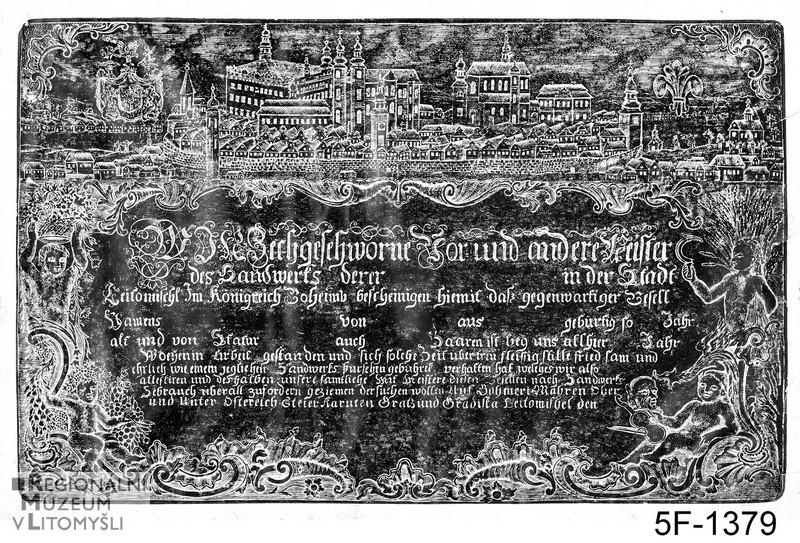 WIR Zechgeschworne Vor und andere Meister
des Handwerks derer in der Stadt
Leitomischl Im Königreich Boheimb bescheinigen hiemit daß gegenwartiger Gesell
Namens von aus geburtig so Jahr
alt und von Statur auch Haaren ist bey uns allhier Jahr
Wochen in Arbeit gestanden und sich solche Zeit über treu fleissig stille fried sam und
ehrlich wie einem jeglichen Handwerks Purschen gebühret verhalten hat welches wir also
attestiren und deshalben unsere samtliche Mit Meistere diesen Gesellen nach Handwerks
Gebrauch uberall zu fordern geziemen der suchen wollen Auf Böhmen Mähren Ober
und Unter Östereich Steier Karnten Gratz und Gradista Leitomischel den
REGIONÁLNÍ
MUZEUM
V LITOMYŠLI
5F-1379